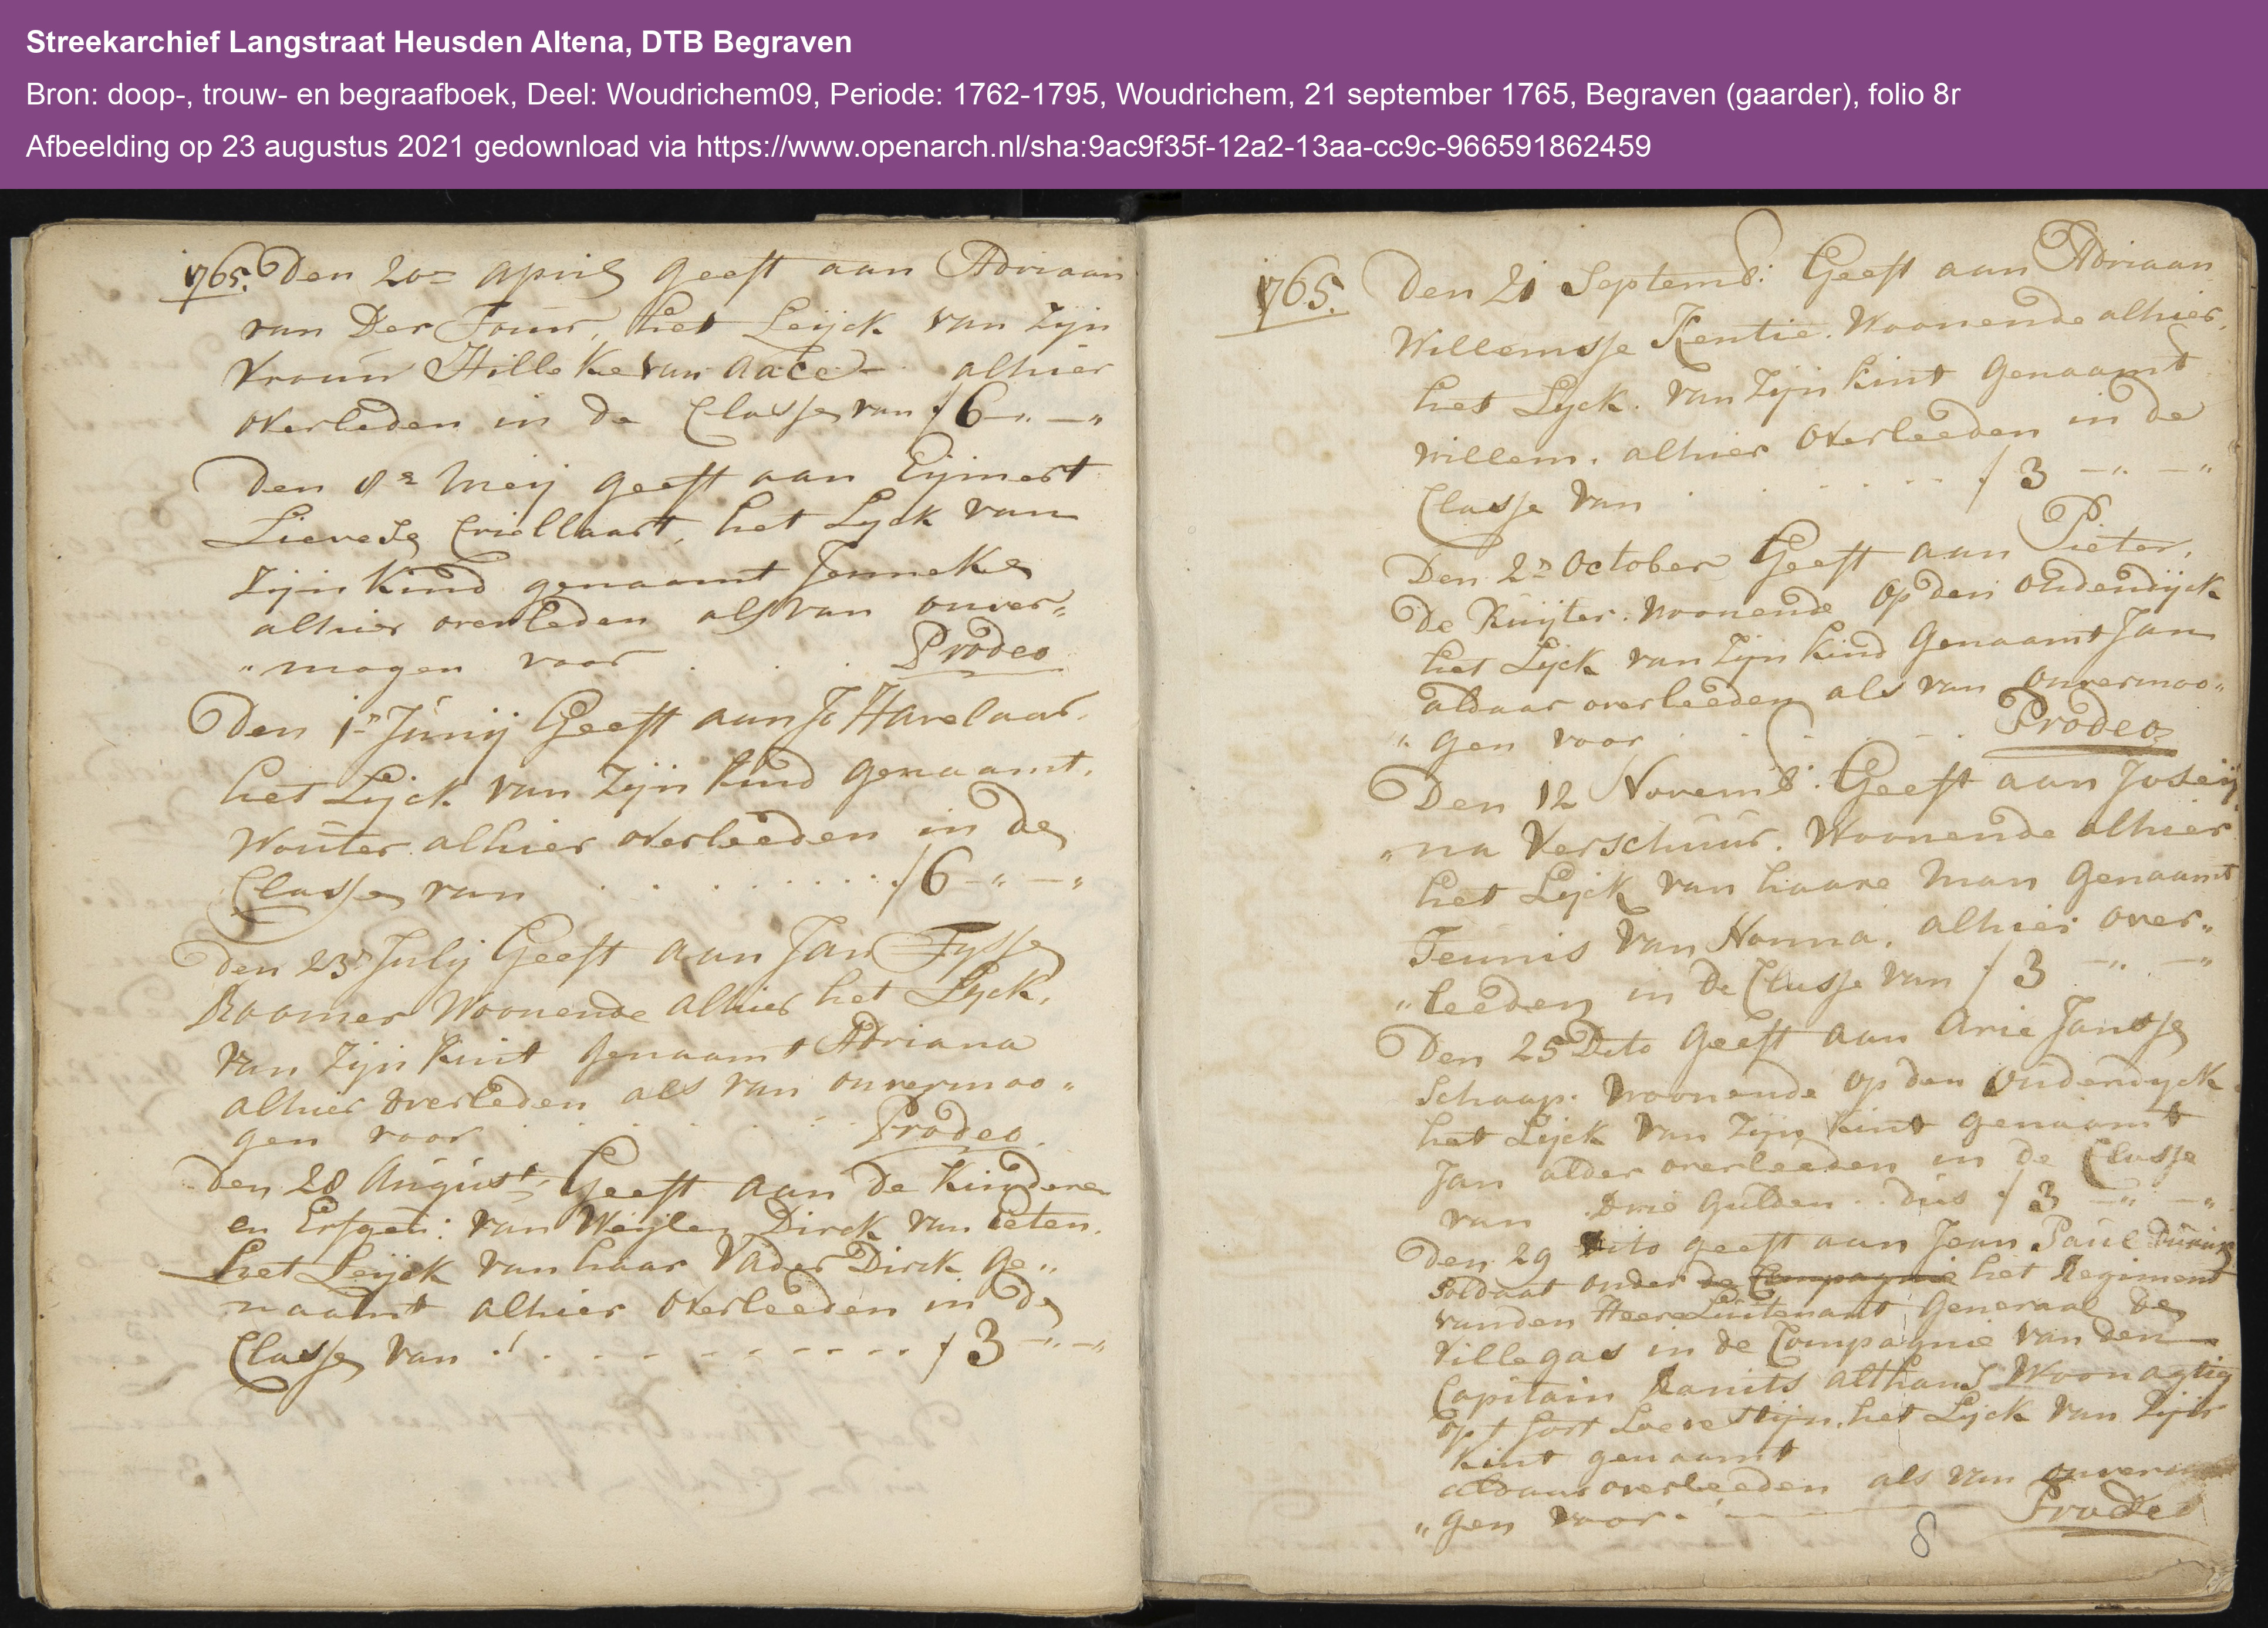 Streekarchief Langstraat Heusden Altena, DTB Begraven
Bron: doop-, trouw- en begraafboek, Deel: Woudrichem09, Periode: 1762-1795, Woudrichem, 21 september 1765, Begraven (gaarder), folio 8r
Afbeelding op 23 augustus 2021 gedownload via https://www.openarch.nl/sha:9ac9f35f-12a2-13aa-cc9c-966591862459
1765. Den 20= April geeft aan Adriaan
van Der Touw, het Leijck van Zijn
Vrouw Hilleke van alhier
overleden in de Classe van ƒ 6 -„ -„
Den 8e Meij geeft aan Eijmert
Lievense Criellaart, het Lyck van
Zijn Kind genaamt Jenneke
alhier overleden als van onver„
„mogen voor . . . Prodeo
Den 1e Junij Geeft aan Jo Havelaar.
het Lijck van Zijn kind genaamt.
Wouter alhier overleeden in de
Classe van . . . . . . . . ƒ 6 -„ -„
Den 23e Julij Geeft aan Jan Tysse
Roomer Woonende alhier het Lyck.
van Zijn kint genaamt Adriana
alhier overleden als van onvermoo„
gen voor . . . . . . Prodeo.
Den 28 August. Geeft aan de Kindere
en Erfgen: van Weijlen Dirck van Eeten.
het Leijck van haar Vader Dirck ge„
naamt alhier overleeden in de
Classe van . . . . . . . . . . ƒ 3 -„ -„
1765. Den 21 Septemb: Geeft aan Adriaan
Willemsse Kentie. Woonende alhier,
het Lyck. van Zijn kint genaamt
Willem. alhier overleeden in de
Classe van . . . . . . ƒ 3 -„ -„
Den 2e October Geeft aan Pieter.
De Ruijter. woonende op den oudendijck
het Lijck van Zijn kind genaamt Jan
aldaar overleeden als van onvermoo„
„gen voor . . . . . Prodeo
Den 12 Novemb: Geeft aan Joseij
„na Verschuur. Woonende alhier
het Lijck van haare Man genaamt
Teunis van Honna. alhier over„
„leeden in de Classe van ƒ 3 -„ -„
Den 25 Dito geeft aan Arie Jansse
Schaap. woonende op den oudendyck
het Lijck van Zijn kint genaamt
Jan alder overleeden in de Classe
van Drie gulden . . dus ƒ 3 -„ -„
Den 29 Dito geeft aan Jean Paul
Soldaat onder de Compagnie het Regiment
van den Heere Luitenant Generaal De
Villegas in de Compagnie van den
Capitain althans Woonagtig
op t fort Loevestijn, het Lijck van Zijn
kint genaamt
aldaar overleeden als van
„gen voor. Prodeo
8